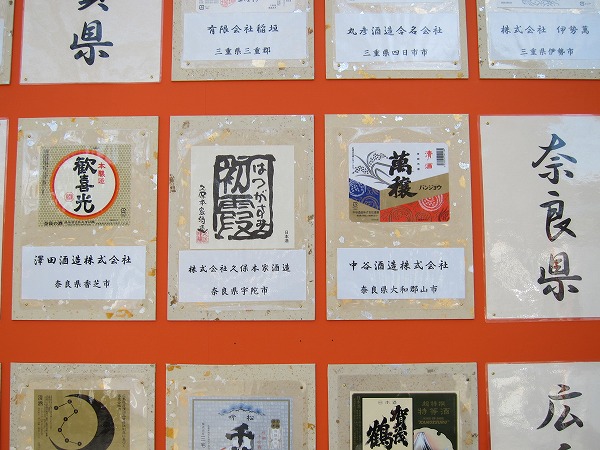 賀県
有限会社稲垣
三重県三重郡
丸彦酒造合名会社
三重県四日市市
株式会社 伊勢萬
三重県伊勢市
奈良県
本醸造
歓喜光
澤田酒造株式会社
奈良県香芝市
はつがすみ
初霞
日本酒
株式会社久保本家酒造
奈良県宇陀市
清酒
萬穣
バンジョウ
中谷酒造株式会社
奈良県大和郡山市
広
清酒
日本酒
賀茂鶴
超特撰
特等酒